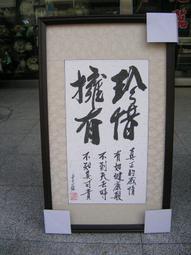 珍惜
擁有
真正的感情
有如健康般
不到失去時
不知其可貴